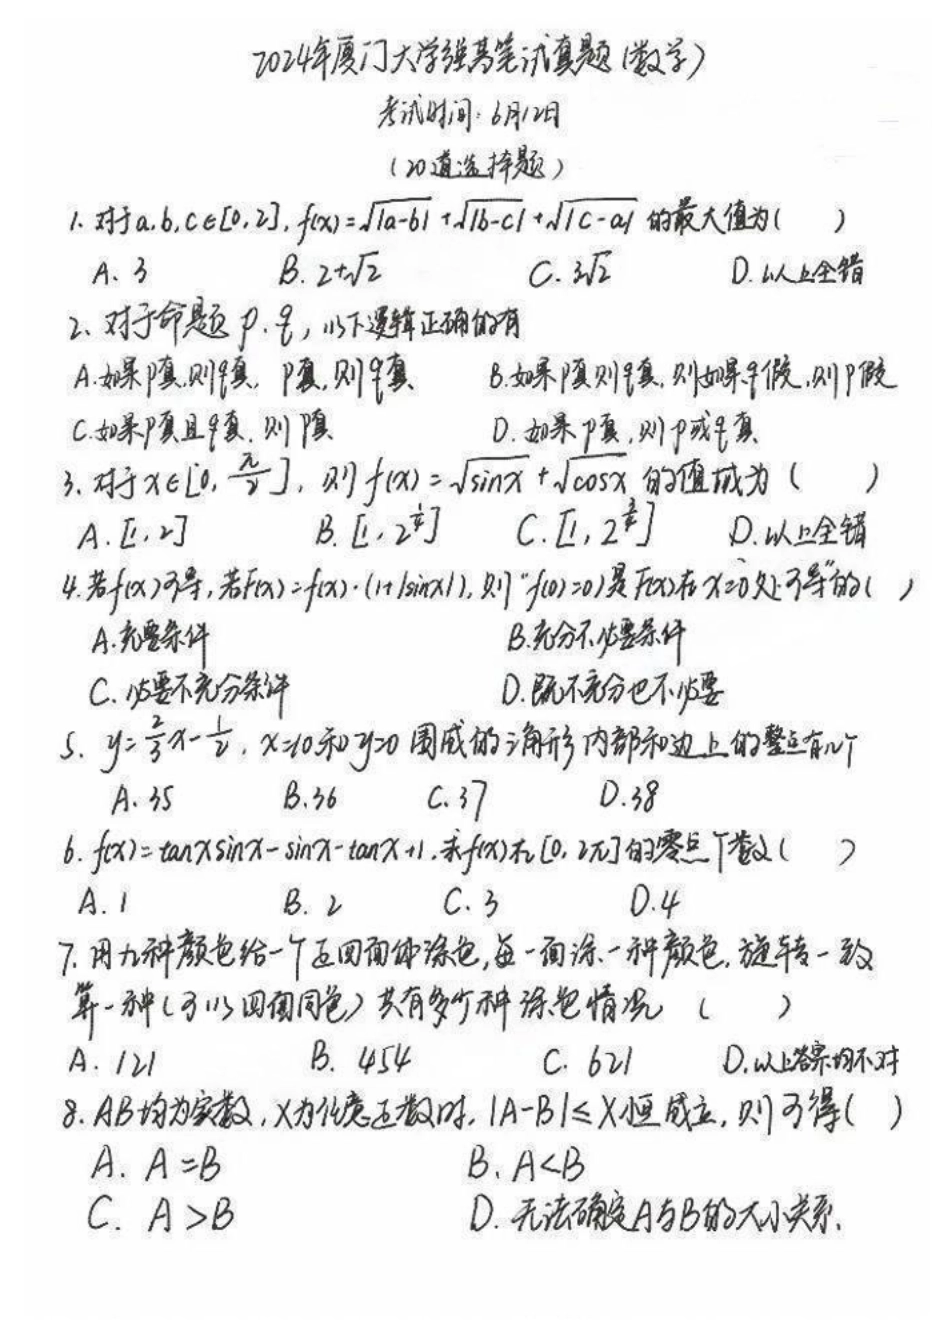 2024年厦门大学强基笔试真题(数学)
考试时间:6月12日
(20道选择题)
1. 对于a,b,c∈[0,2], f(x)=√|a-b| + √|b-c| + √|c-a| 的最大值为( )
A. 3 B. 2+√2 C. 3√2 D. 以上全错
2、对于命题 p、q, 以下逻辑正确的有
A.如果p真,则q真, p真,则q真 B.如果p真则q真,则如果q假,则p假
C.如果p真且q真,则p真 D.如果p真,则p或q真
3. 对于x∈[0, π/2], 则 f(x)=√sinx + √cosx 的值域为( )
A.[1,2] B.[1, 2^] C.[1, 2^] D.以上全错
4.若f(x)可导,若F(x)=f(x)·(1+|sinx|),则"f(0)=0)是F(x)在x=0处可导"的( )
A.充要条件 B.充分不必要条件
C.必要不充分条件 D.既不充分也不必要
5、y=2/3x-1/2, x=10和y=0围成的三角形内部和边上的整点有几个
A. 35 B.36 C.37 D.38
6. f(x)=tanxsinx-sinx-tanx+1,求f(x)在[0,2π]的零点个数( )
A. 1 B. 2 C. 3 D.4
7. 用九种颜色给一个正四面体涂色,每一面涂一种颜色,旋转一致
算一种(可以四面同色)共有多少种涂色情况 ( )
A. 121 B. 454 C. 621 D.以上答案均不对
8. AB均为实数,X为任意正数时, |A-B|≤X恒成立,则可得( )
A. A=B B. A<B
C. A>B D. 无法确定A与B的大小关系.